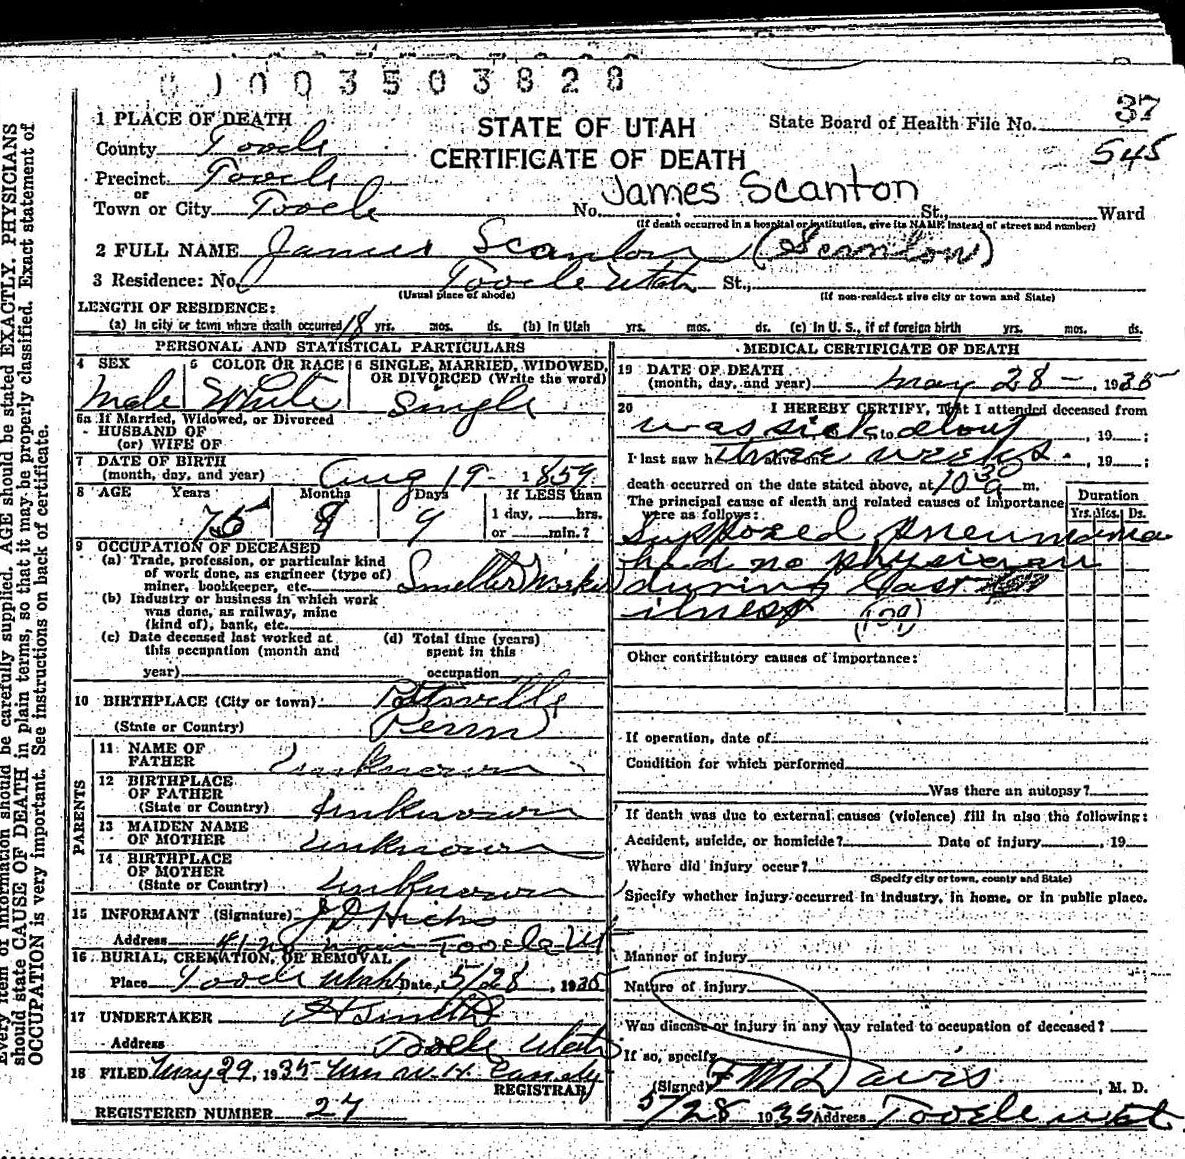 01003503828
1 PLACE OF DEATH
STATE OF UTAH
CERTIFICATE OF DEATH
State Board of Health File No. 37
545
County Tooele
Precinct Tooele
or
Town or City Tooele No. James Scanton St., Ward
(If death occurred in a hospital or institution, give its NAME instead of street and number)
2 FULL NAME James Scanlon (Scanlon)
3 Residence: No. Tooele Utah St.,
(Usual place of abode) (If non-resident give city or town and State)
LENGTH OF RESIDENCE:
(a) In city or town where death occurred 18 yrs. mos. ds. (b) In Utah yrs. mos. ds. (c) In U. S., if of foreign birth yrs. mos. ds.
PERSONAL AND STATISTICAL PARTICULARS
4 SEX 5 COLOR OR RACE 6 SINGLE, MARRIED, WIDOWED, OR DIVORCED (Write the word)
Male White Single
6a If Married, Widowed, or Divorced
HUSBAND OF
(or) WIFE OF
7 DATE OF BIRTH
(month, day, and year) Aug 19 1859
8 AGE Years Months Days If LESS than
75 8 9 1 day, hrs.
or min.?
9 OCCUPATION OF DECEASED
(a) Trade, profession, or particular kind
of work done, as engineer (type of)
miner, bookkeeper, etc. Smelter Worker
(b) Industry or business in which work
was done, as railway, mine
(kind of), bank, etc.
(c) Date deceased last worked at (d) Total time (years)
this occupation (month and spent in this
year) occupation
10 BIRTHPLACE (City or town) Pottsville
(State or Country) Penn
PARENTS
11 NAME OF
FATHER Unknown
12 BIRTHPLACE
OF FATHER
(State or Country) Unknown
13 MAIDEN NAME
OF MOTHER Unknown
14 BIRTHPLACE
OF MOTHER
(State or Country) Unknown
15 INFORMANT (Signature) J D Hicks
Address 41 No Main Tooele Ut.
16 BURIAL, CREMATION, OR REMOVAL
Place Tooele Utah Date 5/28, 1935
17 UNDERTAKER
Address Tooele Utah
18 FILED May 29, 1935
REGISTRAR
REGISTERED NUMBER 27
MEDICAL CERTIFICATE OF DEATH
19 DATE OF DEATH
(month, day, and year) May 28 - , 1935
20 I HEREBY CERTIFY, That I attended deceased from
was sick to about , 19 ;
I last saw h three weeks. alive on , 19 ;
death occurred on the date stated above, at 10 30 a m.
The principal cause of death and related causes of importance Duration
were as follows: Yrs. Mos. Ds.
Supposed pneumonia
had no physician
during last
illness (109)
Other contributory causes of importance:
If operation, date of
Condition for which performed
Was there an autopsy?
If death was due to external causes (violence) fill in also the following:
Accident, suicide, or homicide? Date of injury , 19
Where did injury occur?
(Specify city or town, county and State)
Specify whether injury occurred in industry, in home, or in public place.
Manner of injury
Nature of injury
Was disease or injury in any way related to occupation of deceased?
If so, specify
(Signed) F M Davis , M. D.
5/28 1935 Address Tooele Utah
Every item of information should be carefully supplied. AGE should be stated EXACTLY. PHYSICIANS
should state CAUSE OF DEATH in plain terms, so that it may be properly classified. Exact statement of
OCCUPATION is very important. See instructions on back of certificate.